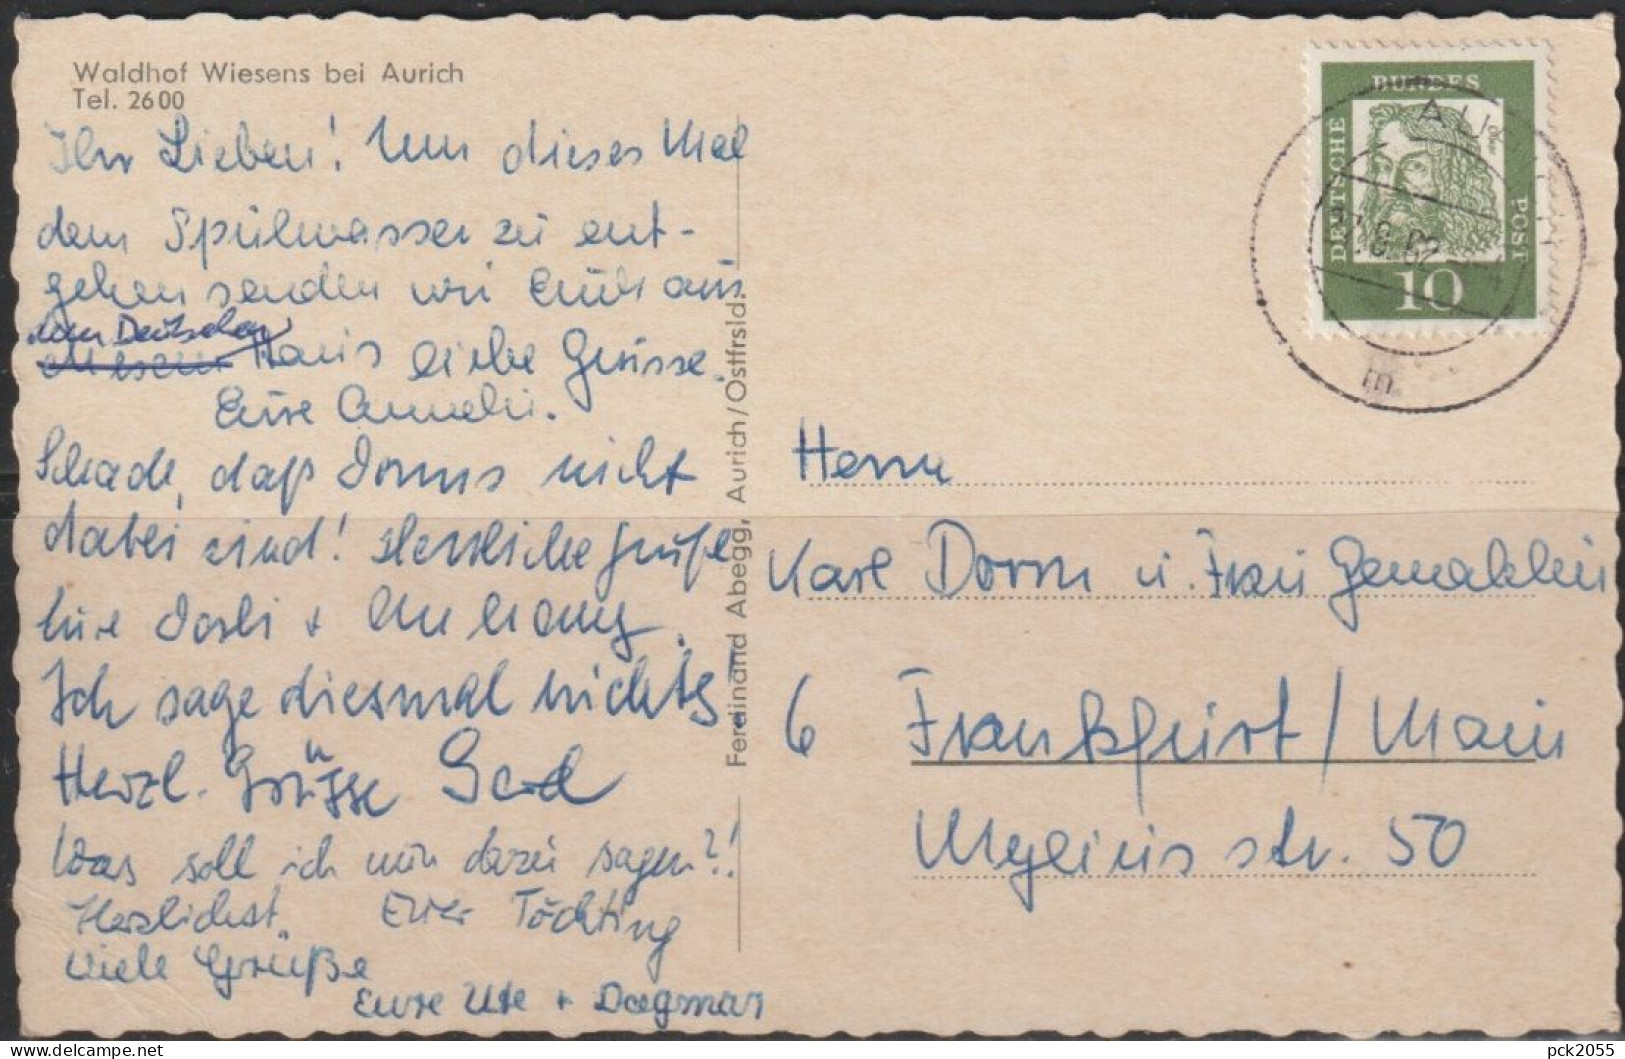 Waldhof Wiesens bei Aurich
Tel. 2600
Ihr Lieben! Um dieses Mal
dem Spülwasser zu ent-
gehen senden wir Euch aus
dem Deutschen
diesem Haus liebe Grüsse.
Eure Anneli.
Schade, daß Dorns nicht
dabei sind! Herzliche Grüße
Eure Dorli + Anhang.
Ich sage diesmal nichts
Herzl. Grüsse Gerd
Was soll ich nun dazu sagen?!
Herzlichst. Euer Töchting
Viele Grüße
Eure Ute + Dagmar
Ferdinand Abegg, Aurich/Ostfrsld.
DEUTSCHE
BUNDES
POST
10
Herrn
Karl Dorn u. Frau Gemahlin
6 Frankfurt/Main
Myliusstr. 50
delcampe.net
pck2055